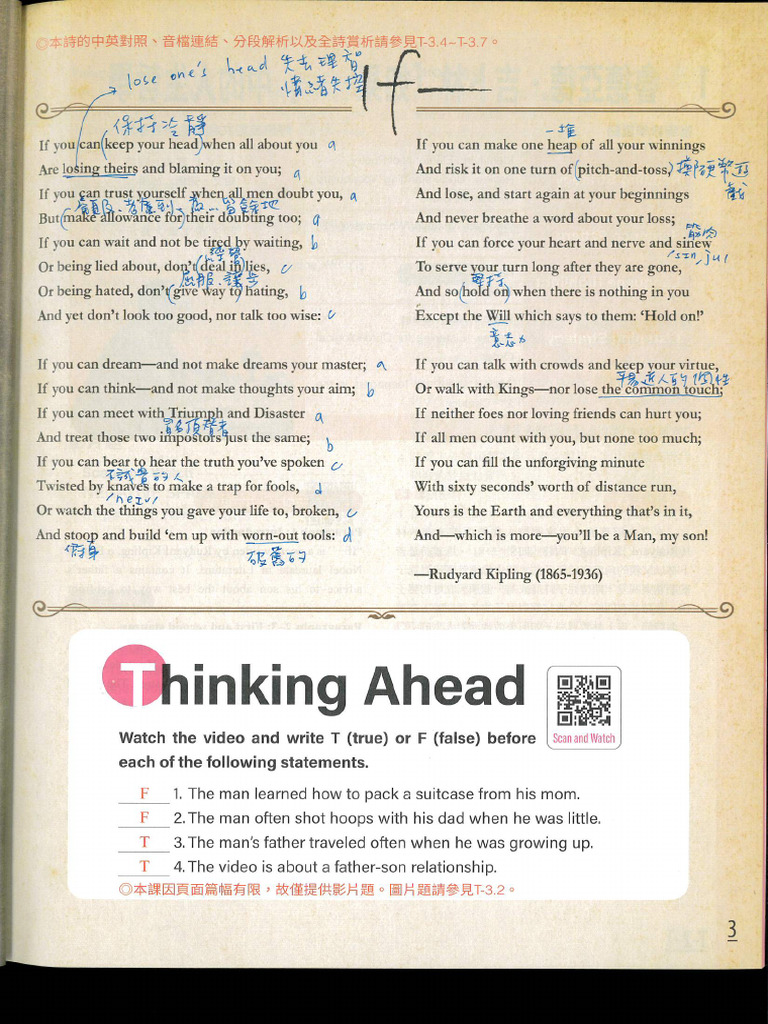 ◎本詩的中英對照、音檔連結、分段解析以及全詩賞析請參見T-3.4~T-3.7。
lose one's head 失去理智
情緒失控
If—
保持冷靜
If you can keep your head when all about you a
Are losing theirs and blaming it on you; a
If you can trust yourself when all men doubt you, a
But make allowance for their doubting too; a
If you can wait and not be tired by waiting, b
Or being lied about, don't deal in lies, c
屈服、讓步
Or being hated, don't give way to hating, b
And yet don't look too good, nor talk too wise: c
If you can dream—and not make dreams your master; a
If you can think—and not make thoughts your aim; b
If you can meet with Triumph and Disaster a
冒名頂替者
And treat those two impostors just the same; b
If you can bear to hear the truth you've spoken c
不誠實的人
Twisted by knaves to make a trap for fools, d
Or watch the things you gave your life to, broken, c
And stoop and build 'em up with worn-out tools: d
俯身
破舊的
一堆
If you can make one heap of all your winnings
And risk it on one turn of (pitch-and-toss,)
And lose, and start again at your beginnings
And never breathe a word about your loss;
筋肉
If you can force your heart and nerve and sinew
To serve your turn long after they are gone,
堅持
And so (hold on) when there is nothing in you
Except the Will which says to them: 'Hold on!'
意志力
If you can talk with crowds and keep your virtue,
平易近人的個性
Or walk with Kings—nor lose the common touch;
If neither foes nor loving friends can hurt you;
If all men count with you, but none too much;
If you can fill the unforgiving minute
With sixty seconds' worth of distance run,
Yours is the Earth and everything that's in it,
And—which is more—you'll be a Man, my son!
—Rudyard Kipling (1865-1936)
Thinking Ahead
Scan and Watch
Watch the video and write T (true) or F (false) before
each of the following statements.
F 1. The man learned how to pack a suitcase from his mom.
F 2. The man often shot hoops with his dad when he was little.
T 3. The man's father traveled often when he was growing up.
T 4. The video is about a father-son relationship.
◎本課因頁面篇幅有限，故僅提供影片題。圖片題請參見T-3.2。
3